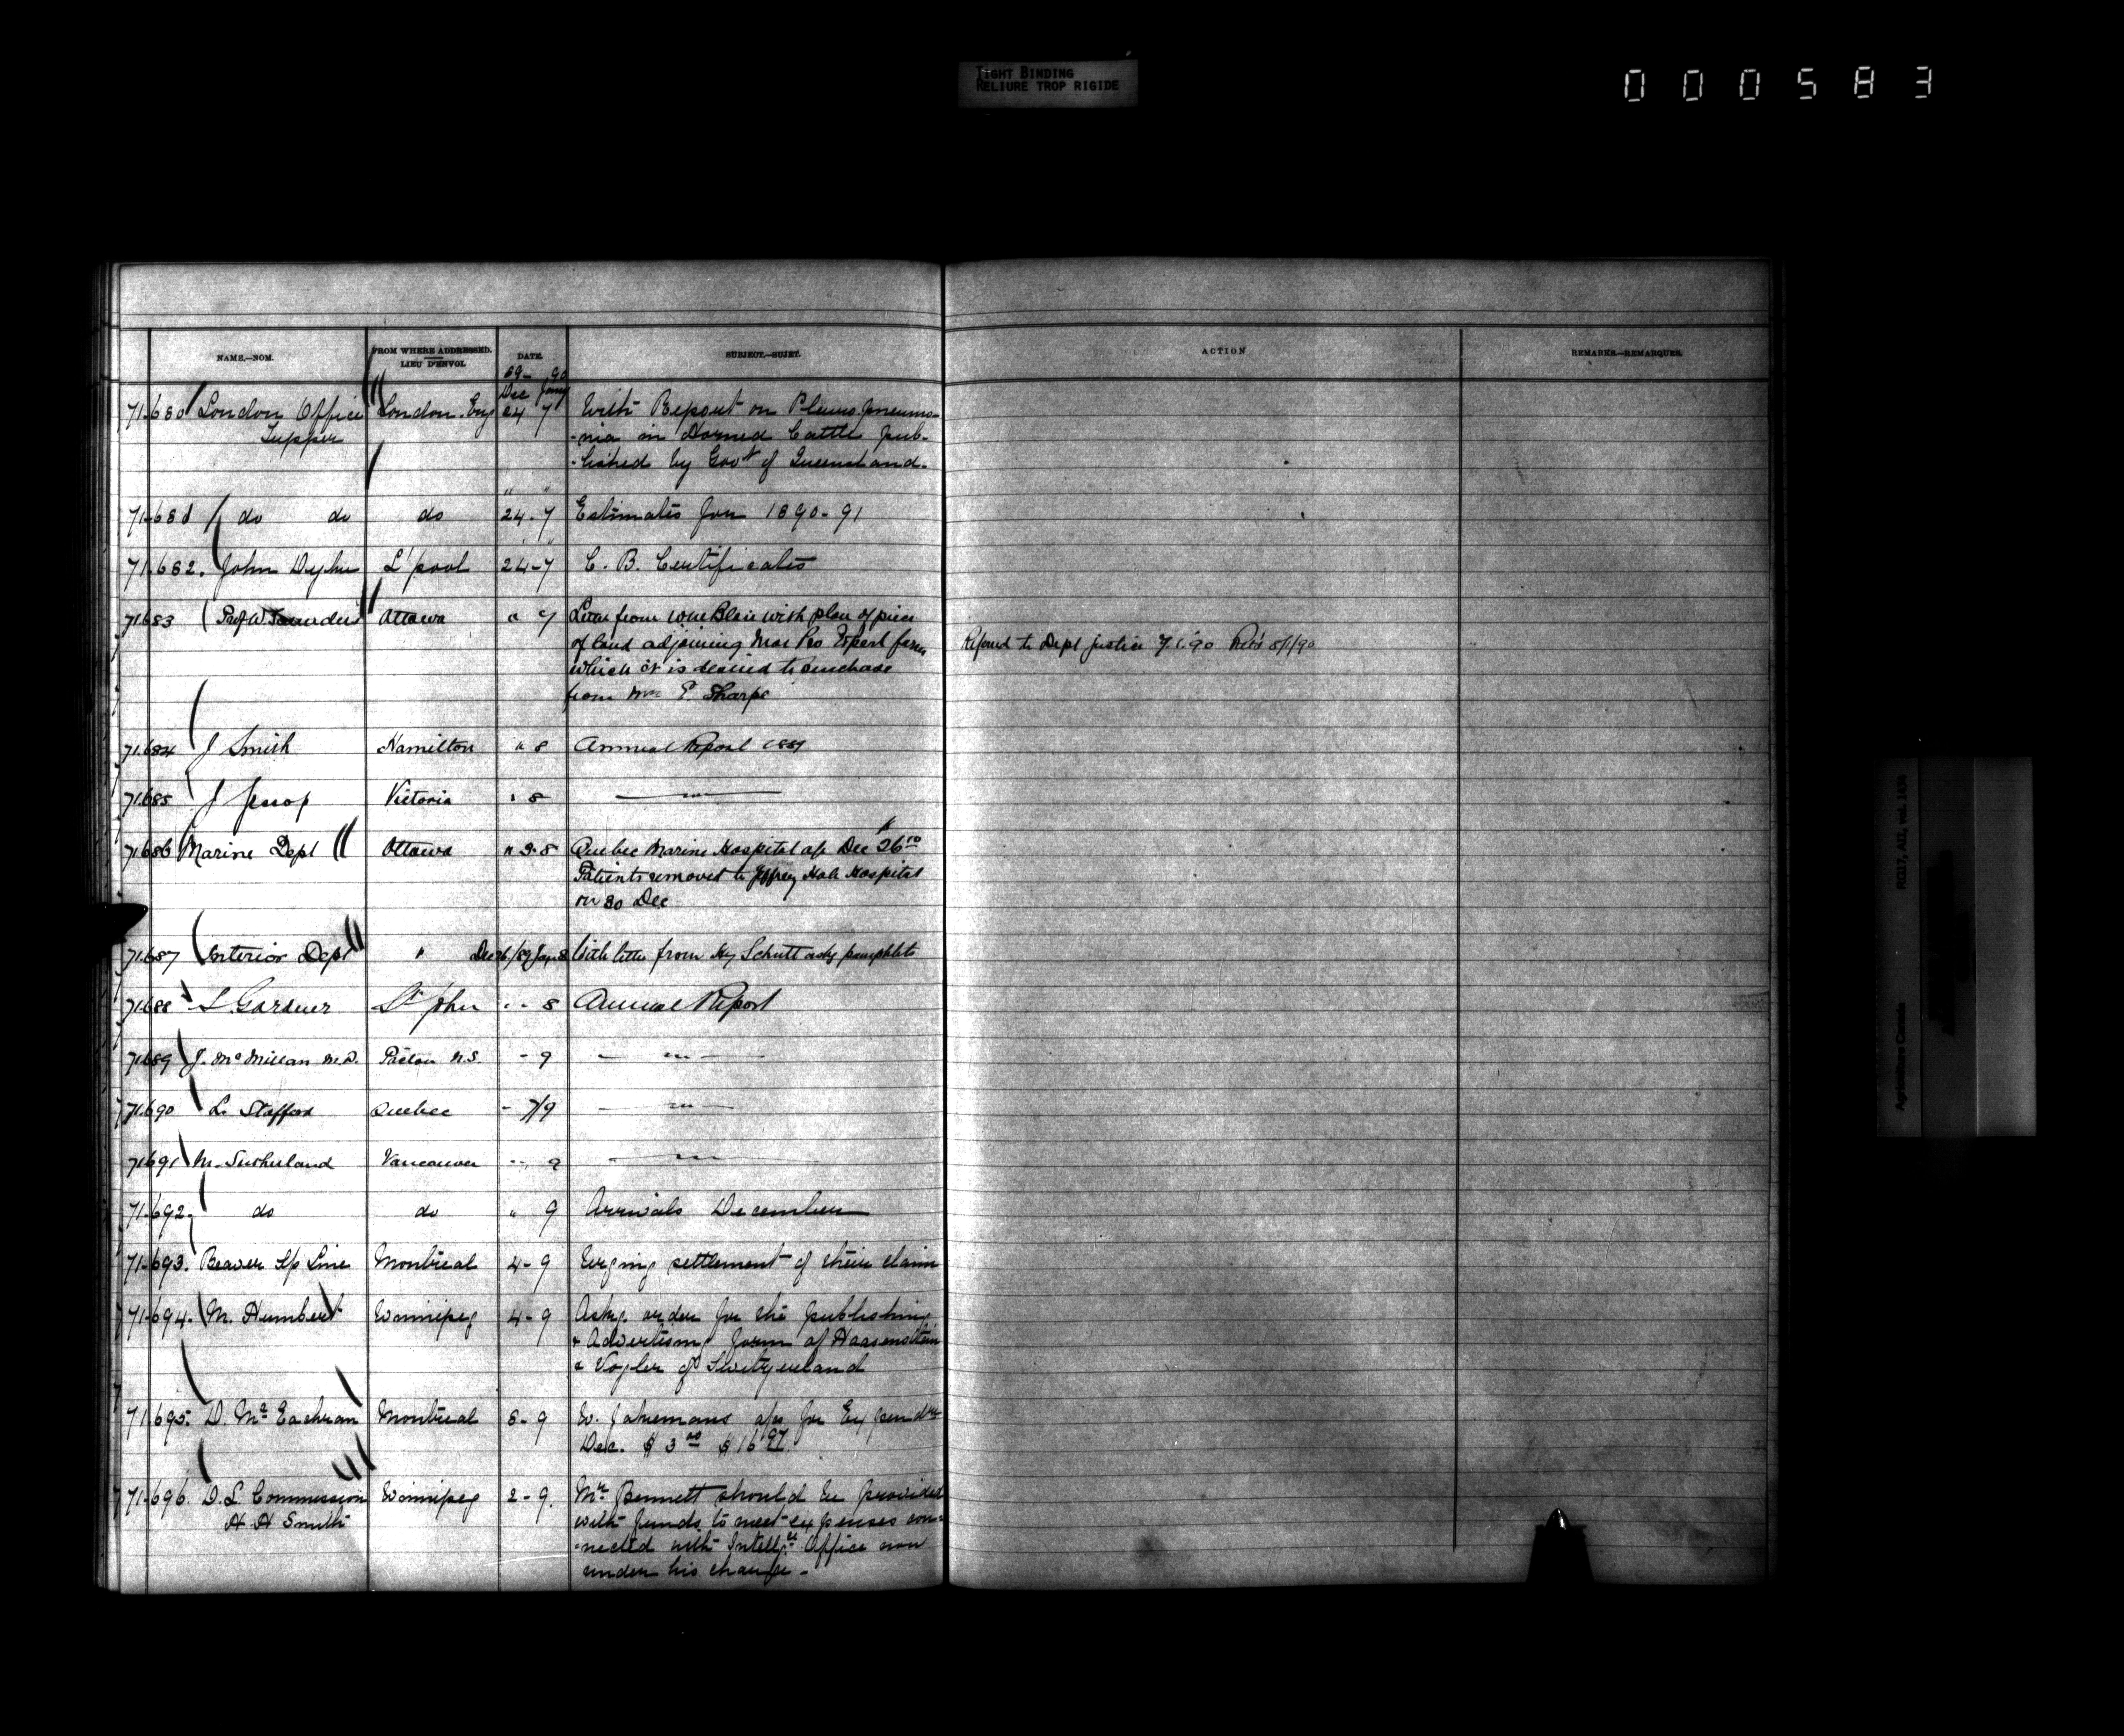 TIGHT BINDING
RELIURE TROP RIGIDE
000583
NAME.—NOM.
FROM WHERE ADDRESSED.
LIEU D'ENVOI.
DATE.
SUBJECT.—SUJET.
ACTION
REMARKS.—REMARQUES.
89- 90
Dec Jany
71.680 London Office London. Eng 24 7 With Report on Pleuro pneumo-
Tupper -nia in Horned Cattle pub-
-lished by Govt of Queensland.
" "
71.681 do do do 24-7 Estimates for 1890-91
71.682. John Dyke L'pool 24-7 C. B. Certificates
71.683 Prof W. Saunders Ottawa " 7 Letter from Wm Blair with plan of piece
of land adjoining Mar Pro Experl farm Referred to Dept Justice 7.1.90 8/1/90
which it is desired to purchase
from T. Sharpe
71.684 J Smith Hamilton " 8 Annual Report 1889
71.685 J Jessop Victoria " 8 — " —
71.686 Marine Dept Ottawa " 3-8 Quebec Marine Hospital a/c Dec 26
Patients removed to Jeffrey Hale Hospital
on 30 Dec
71.687 Interior Dept " Dec 26/89 Jan 8 With letter from Hy Schutt askg pamphlets
71.688 S. Gardner St John " - 8 Annual Report
71.689 J. McMillan M.D. Pictou N.S. - 9 — " —
71.690 L. Stafford Quebec - 7/9 — " —
71.691 M. Sutherland Vancouver - 9 — " —
71.692. do do " 9 Arrivals December
71.693. Beaver S/p Line Montreal 4-9 Urging settlement of their claim
71.694. M. Humbert Winnipeg 4-9 Askg. order for the publishing
& Advertising form of Haasenstein
& Vogler of Switzerland
71.695. D. McEachran Montreal 8-9 W. Jakemans a/cs for Expendre
Dec. $3 00 $16 97
71.696. D. L. Commission Winnipeg 2-9. Mr Bennett should be provided
H H Smith with funds to meet expenses con-
-nected with Intellgce Office now
under his charge.-
RG17, AII, vol. 1634
Agriculture Canada